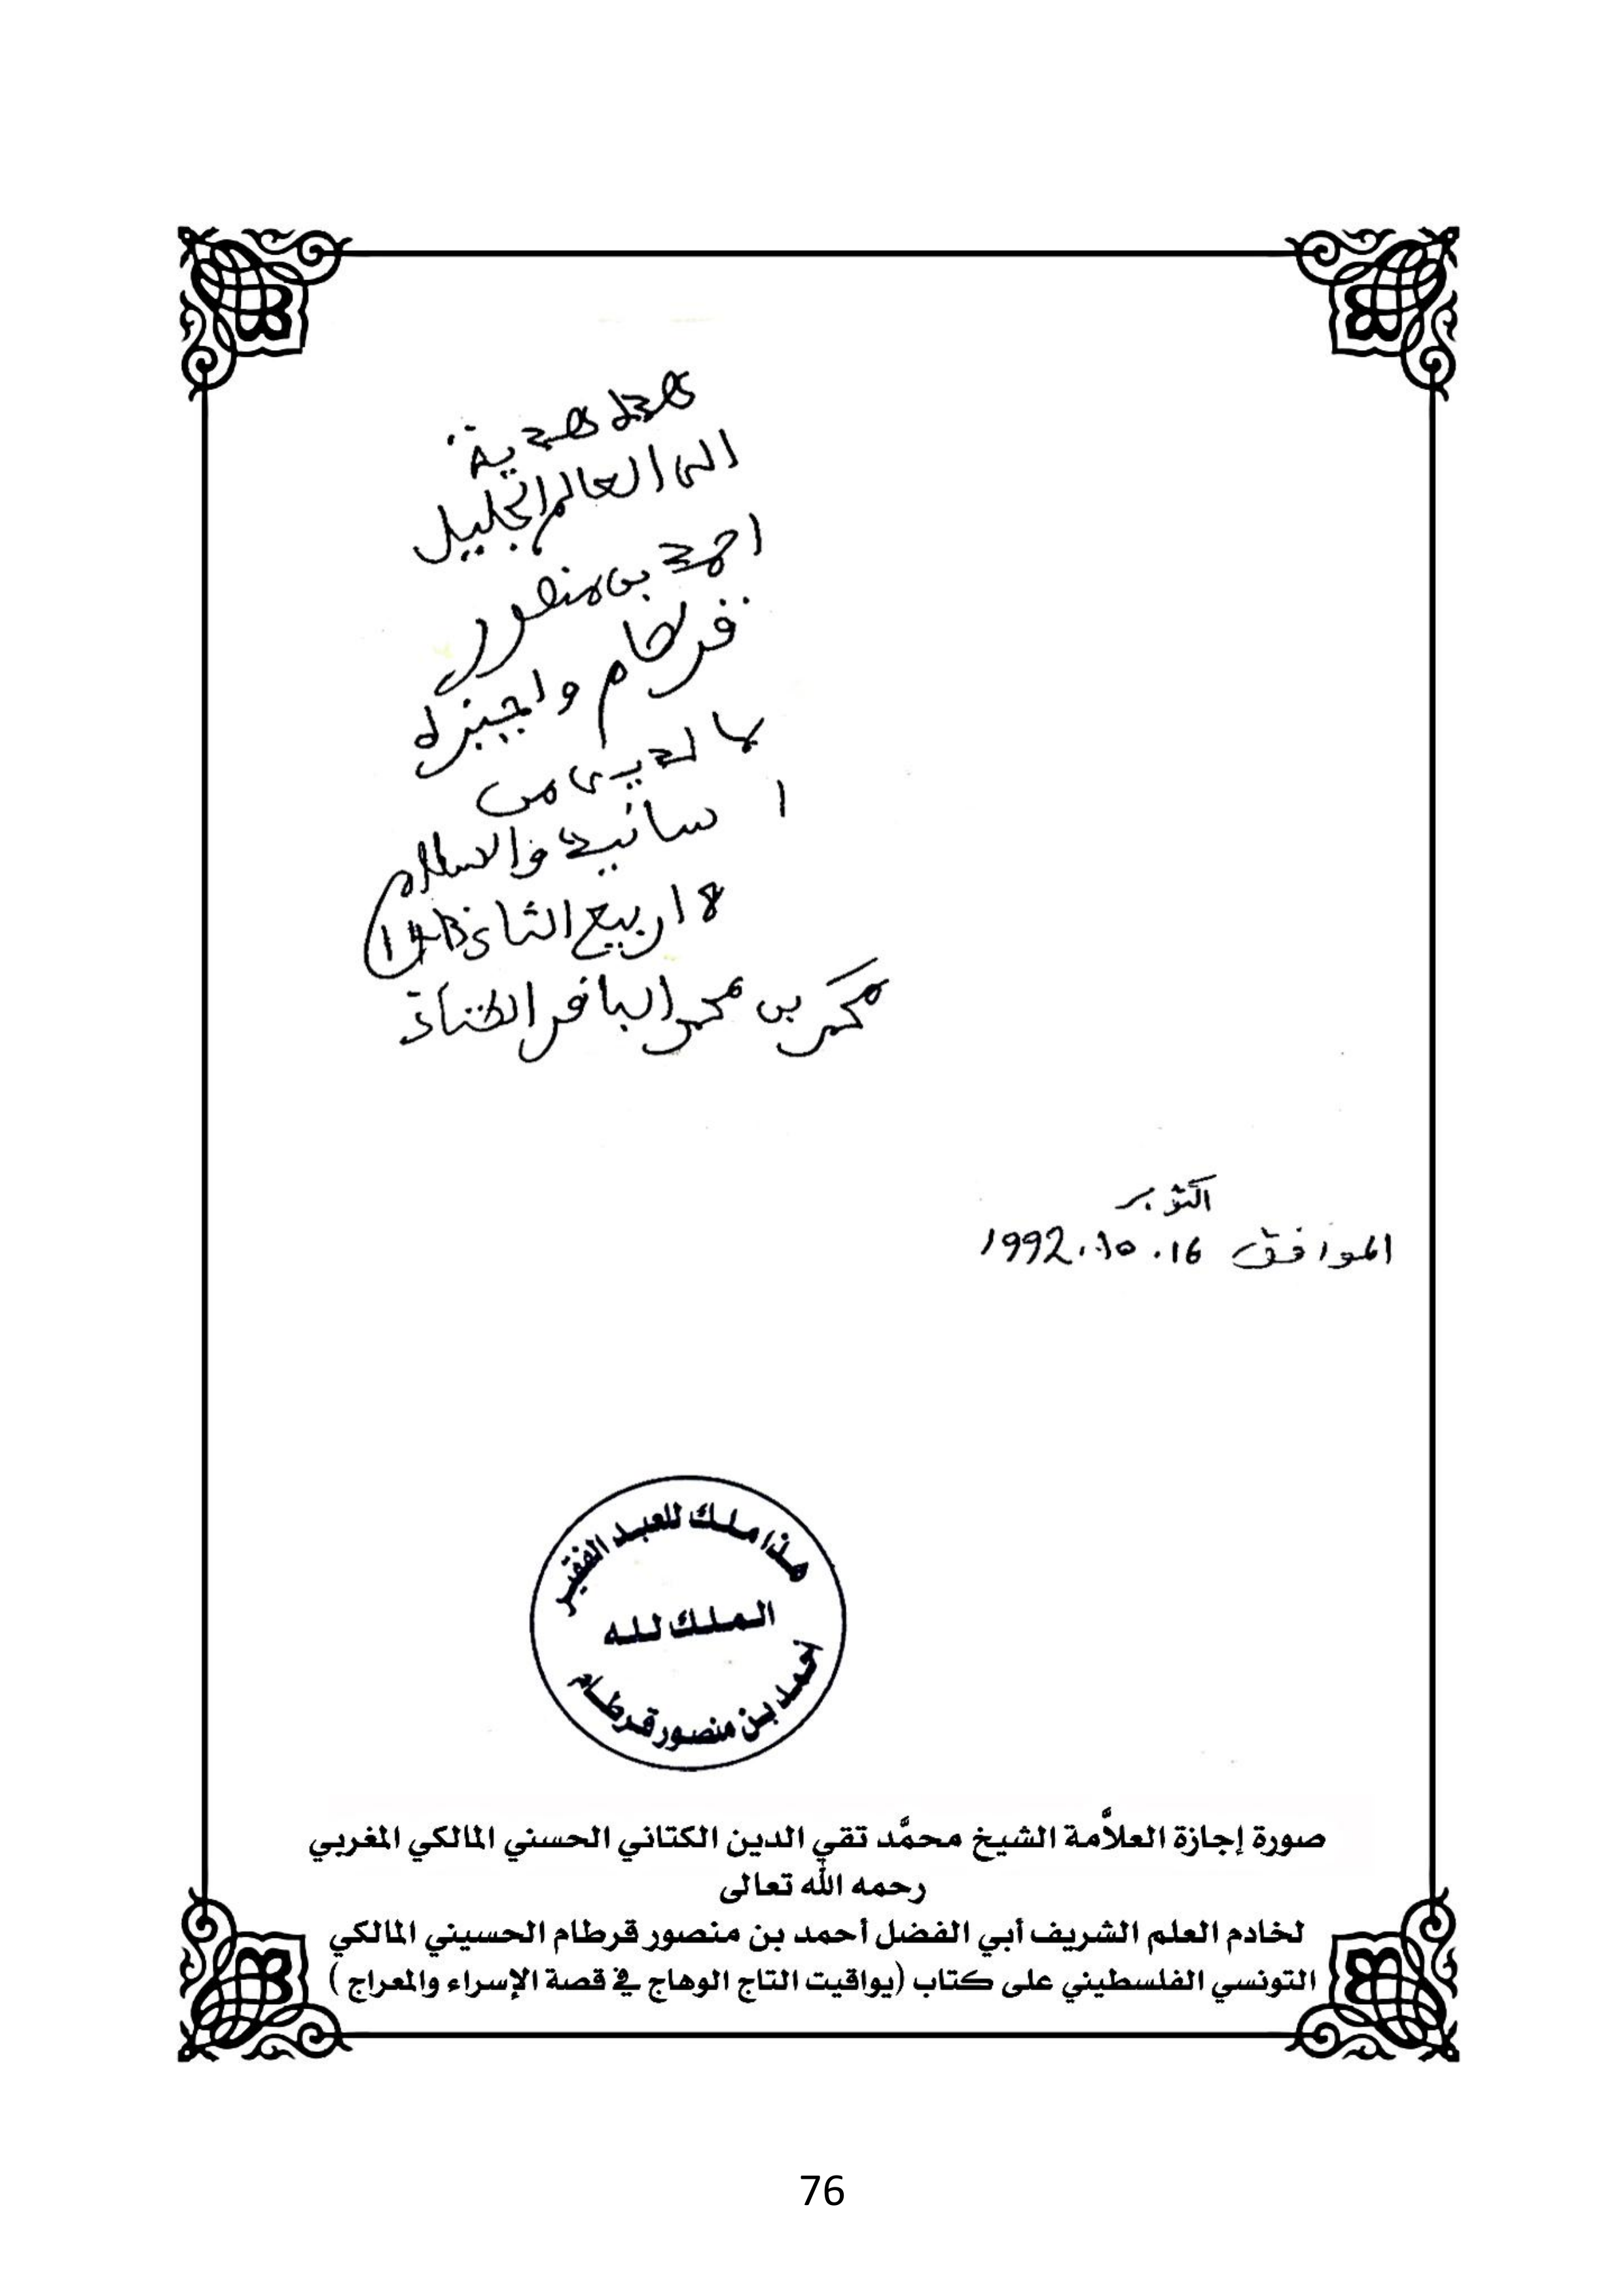 هذه هدية
الى العالم الجليل
احمد بن منصور
قرطام واجيزه
بما لدي من
اسانيد والسلام
18 ربيع الثاني 1413
محمد بن محمد الباقر الكتاني
اكتوبر
الموافق 16.10.1992
هذا ملك للعبد الفقير
الملك لله
احمد بن منصور قرطام
صورة إجازة العلاَّمة الشيخ محمَّد تقي الدين الكتاني الحسني المالكي المغربي
رحمه الله تعالى
لخادم العلم الشريف أبي الفضل أحمد بن منصور قرطام الحسيني المالكي
التونسي الفلسطيني على كتاب (يواقيت التاج الوهاج في قصة الإسراء والمعراج )
76